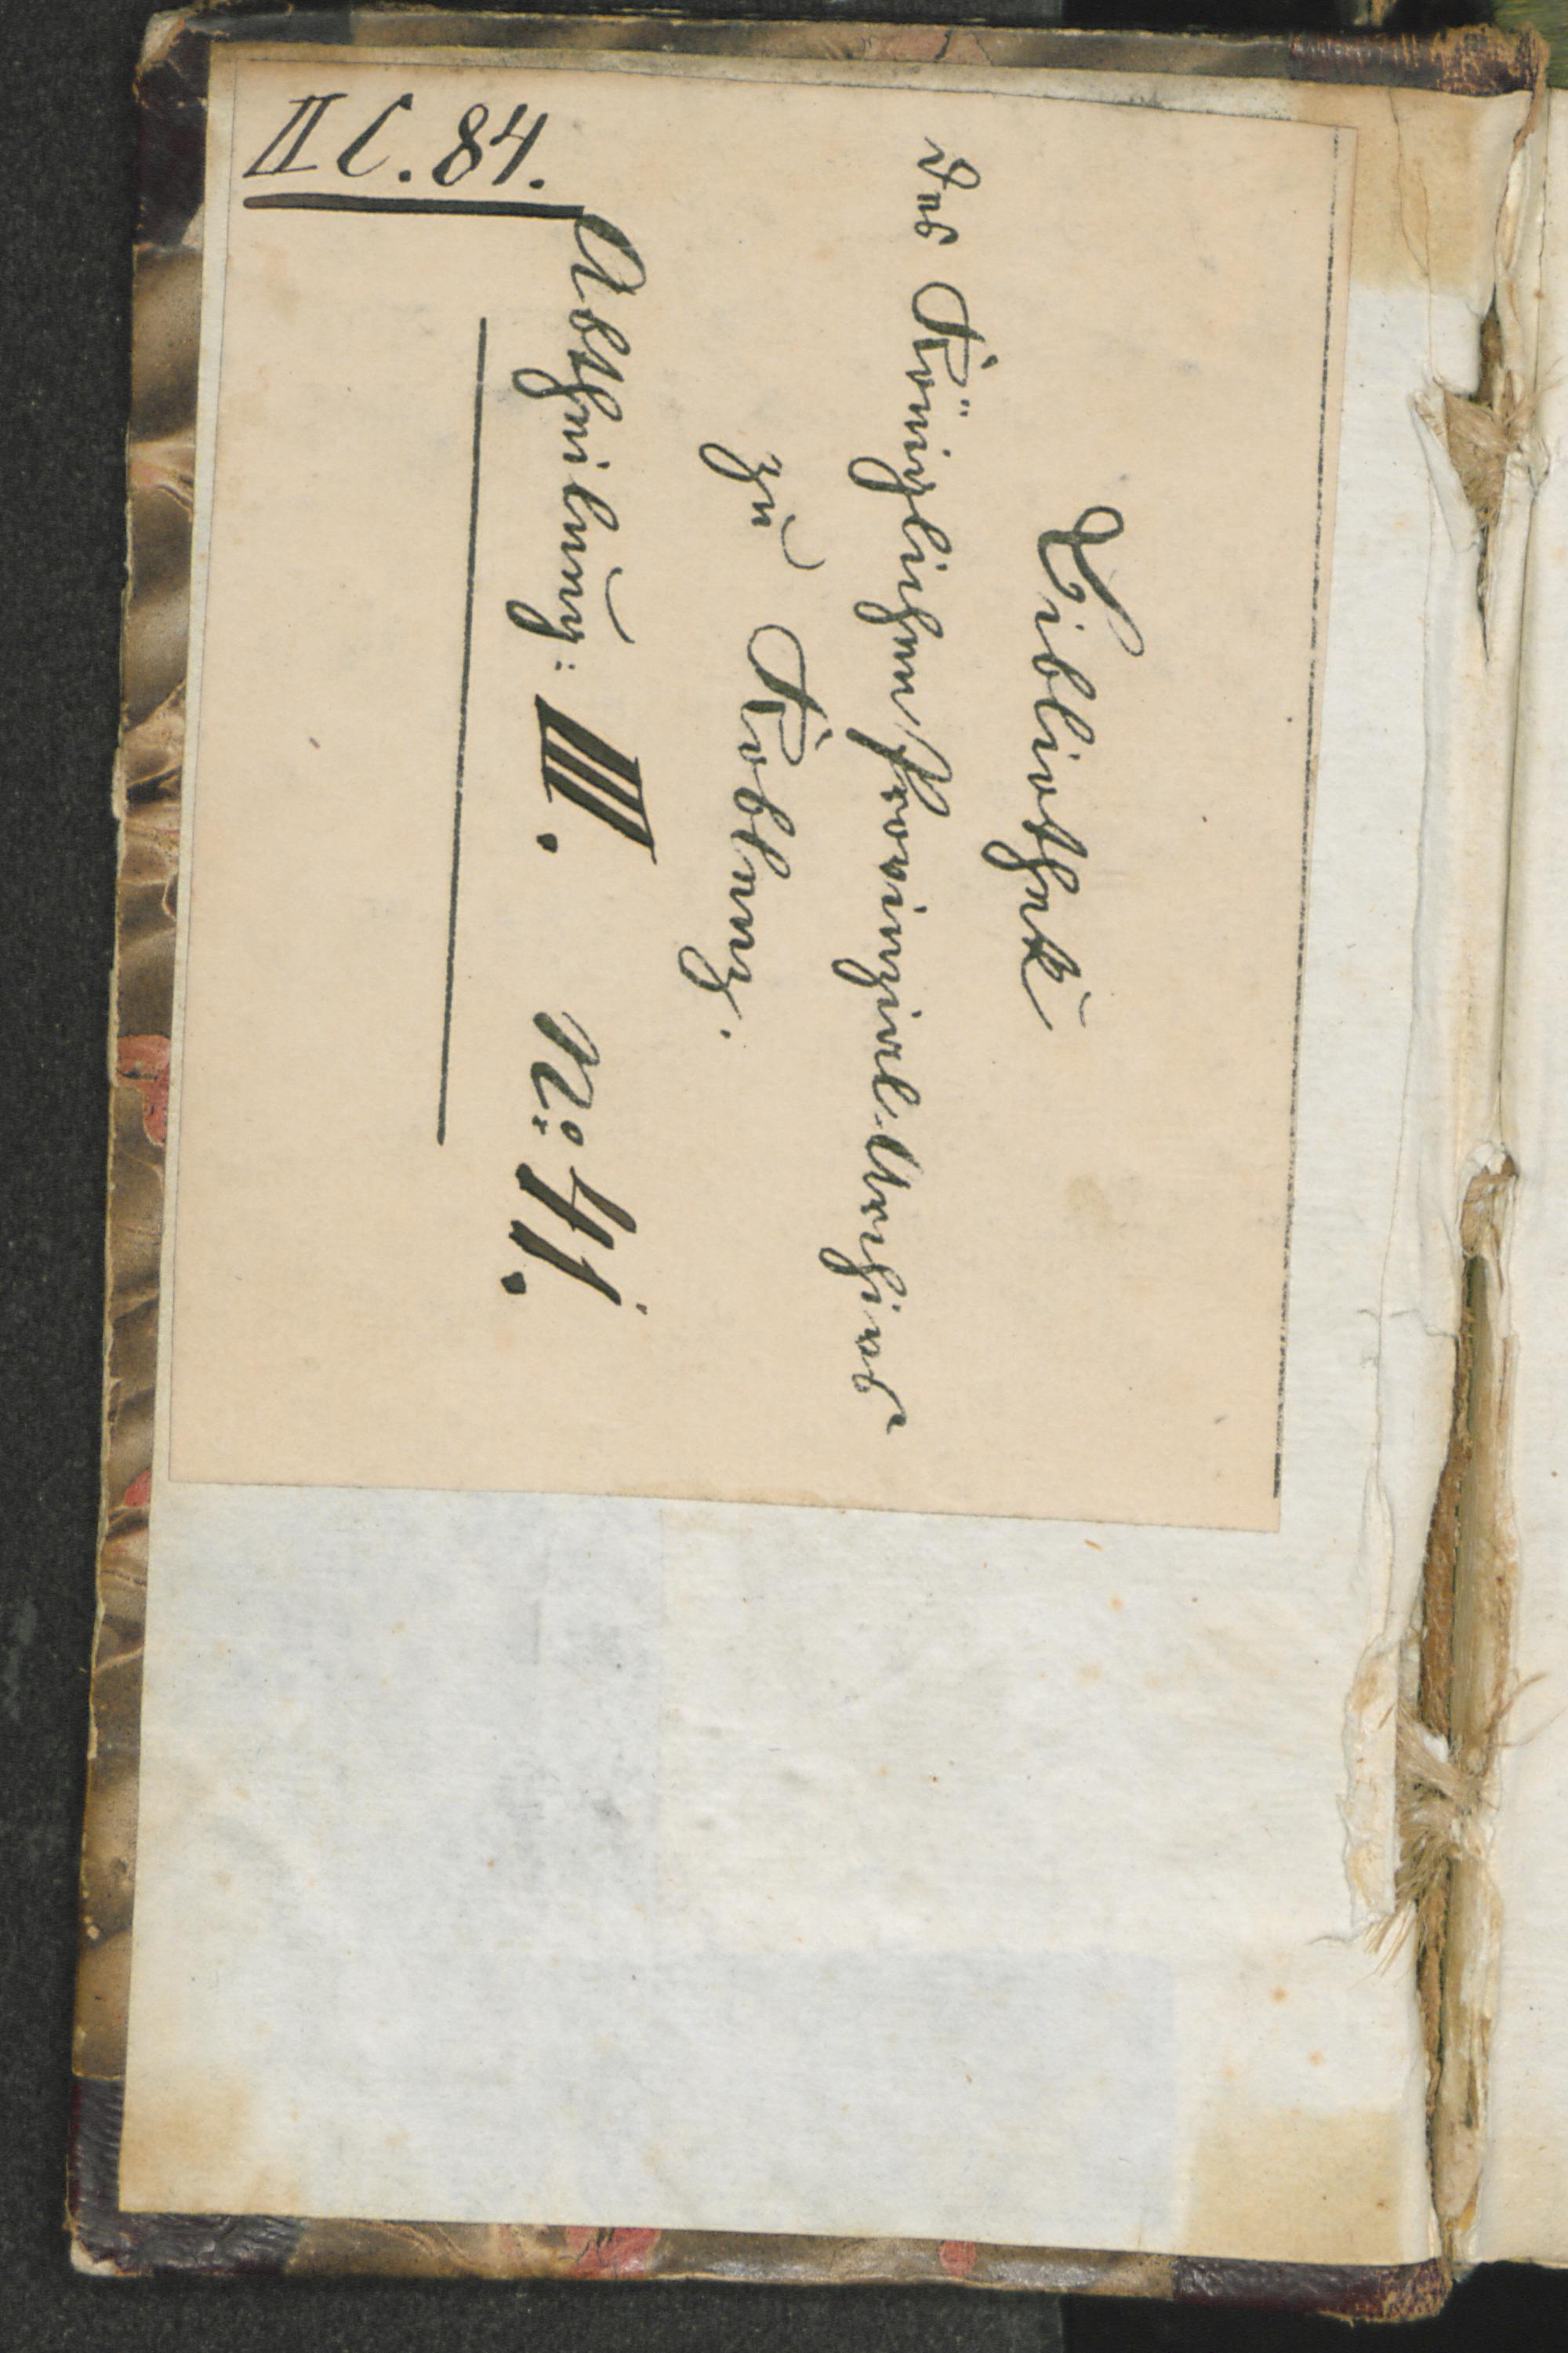 II C. 84.
Bibliothek
des Königlichen Provinzial-Archivs
zu Koblenz.
Abtheilung: III. No: 41.